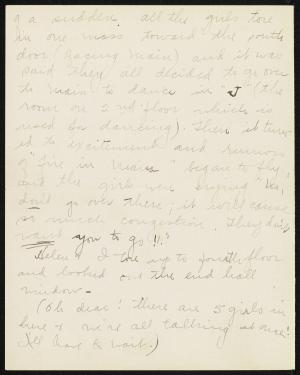 of a sudden all the girls tore
in one mass toward the south
door (facing Main) and it was
said they all decided to go over
to Main to dance in "J" (the
room on 2nd floor which is
used for dancing). Then it turn-
ed to excitement and rumors
of "fire in Main" began to fly,
and the girls were crying "No,
don't go over there; it will cause
so much congestion. They don't
want you to go!!"
Helen & I tore up to fourth floor
and looked out the end hall
window -
(Oh dear! There are 5 girls in
here & we're all talking at once!
I'll have to wait.)